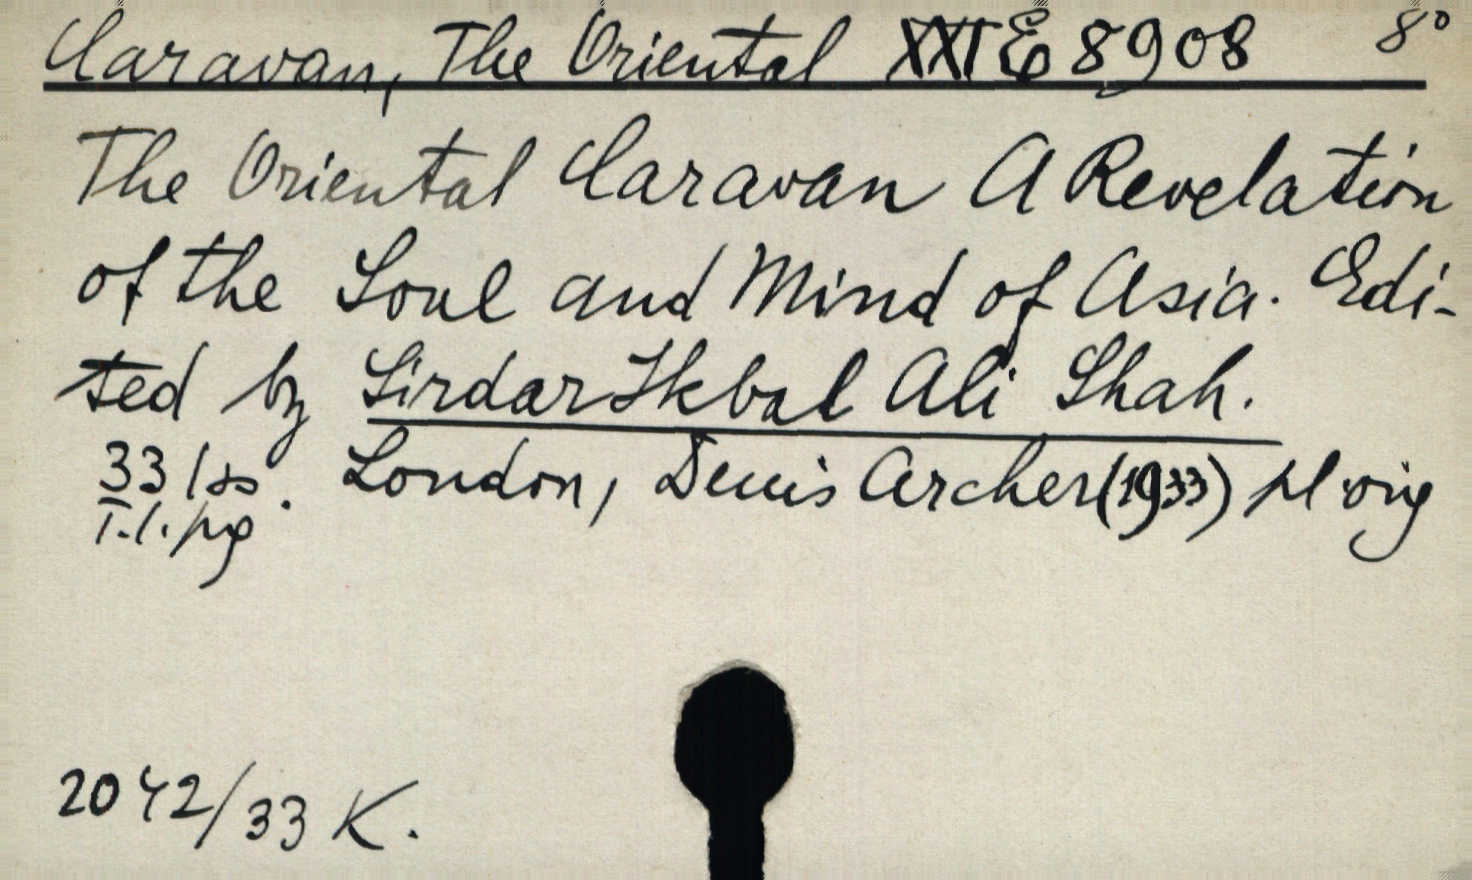 Caravan, The Oriental XXI E 8908 8°
The Oriental Caravan A Revelation
of the Soul and Mind of Asia. Edi-
ted by Sirdar Ikbal Ali Shah.
33 1ss. London, Denis Archer (1933)
T.l.
2042/33 K.